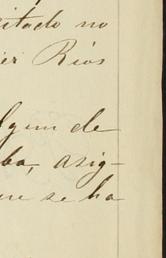 citado no
ier Rios
lgun de
ba, asig-
ue se ha